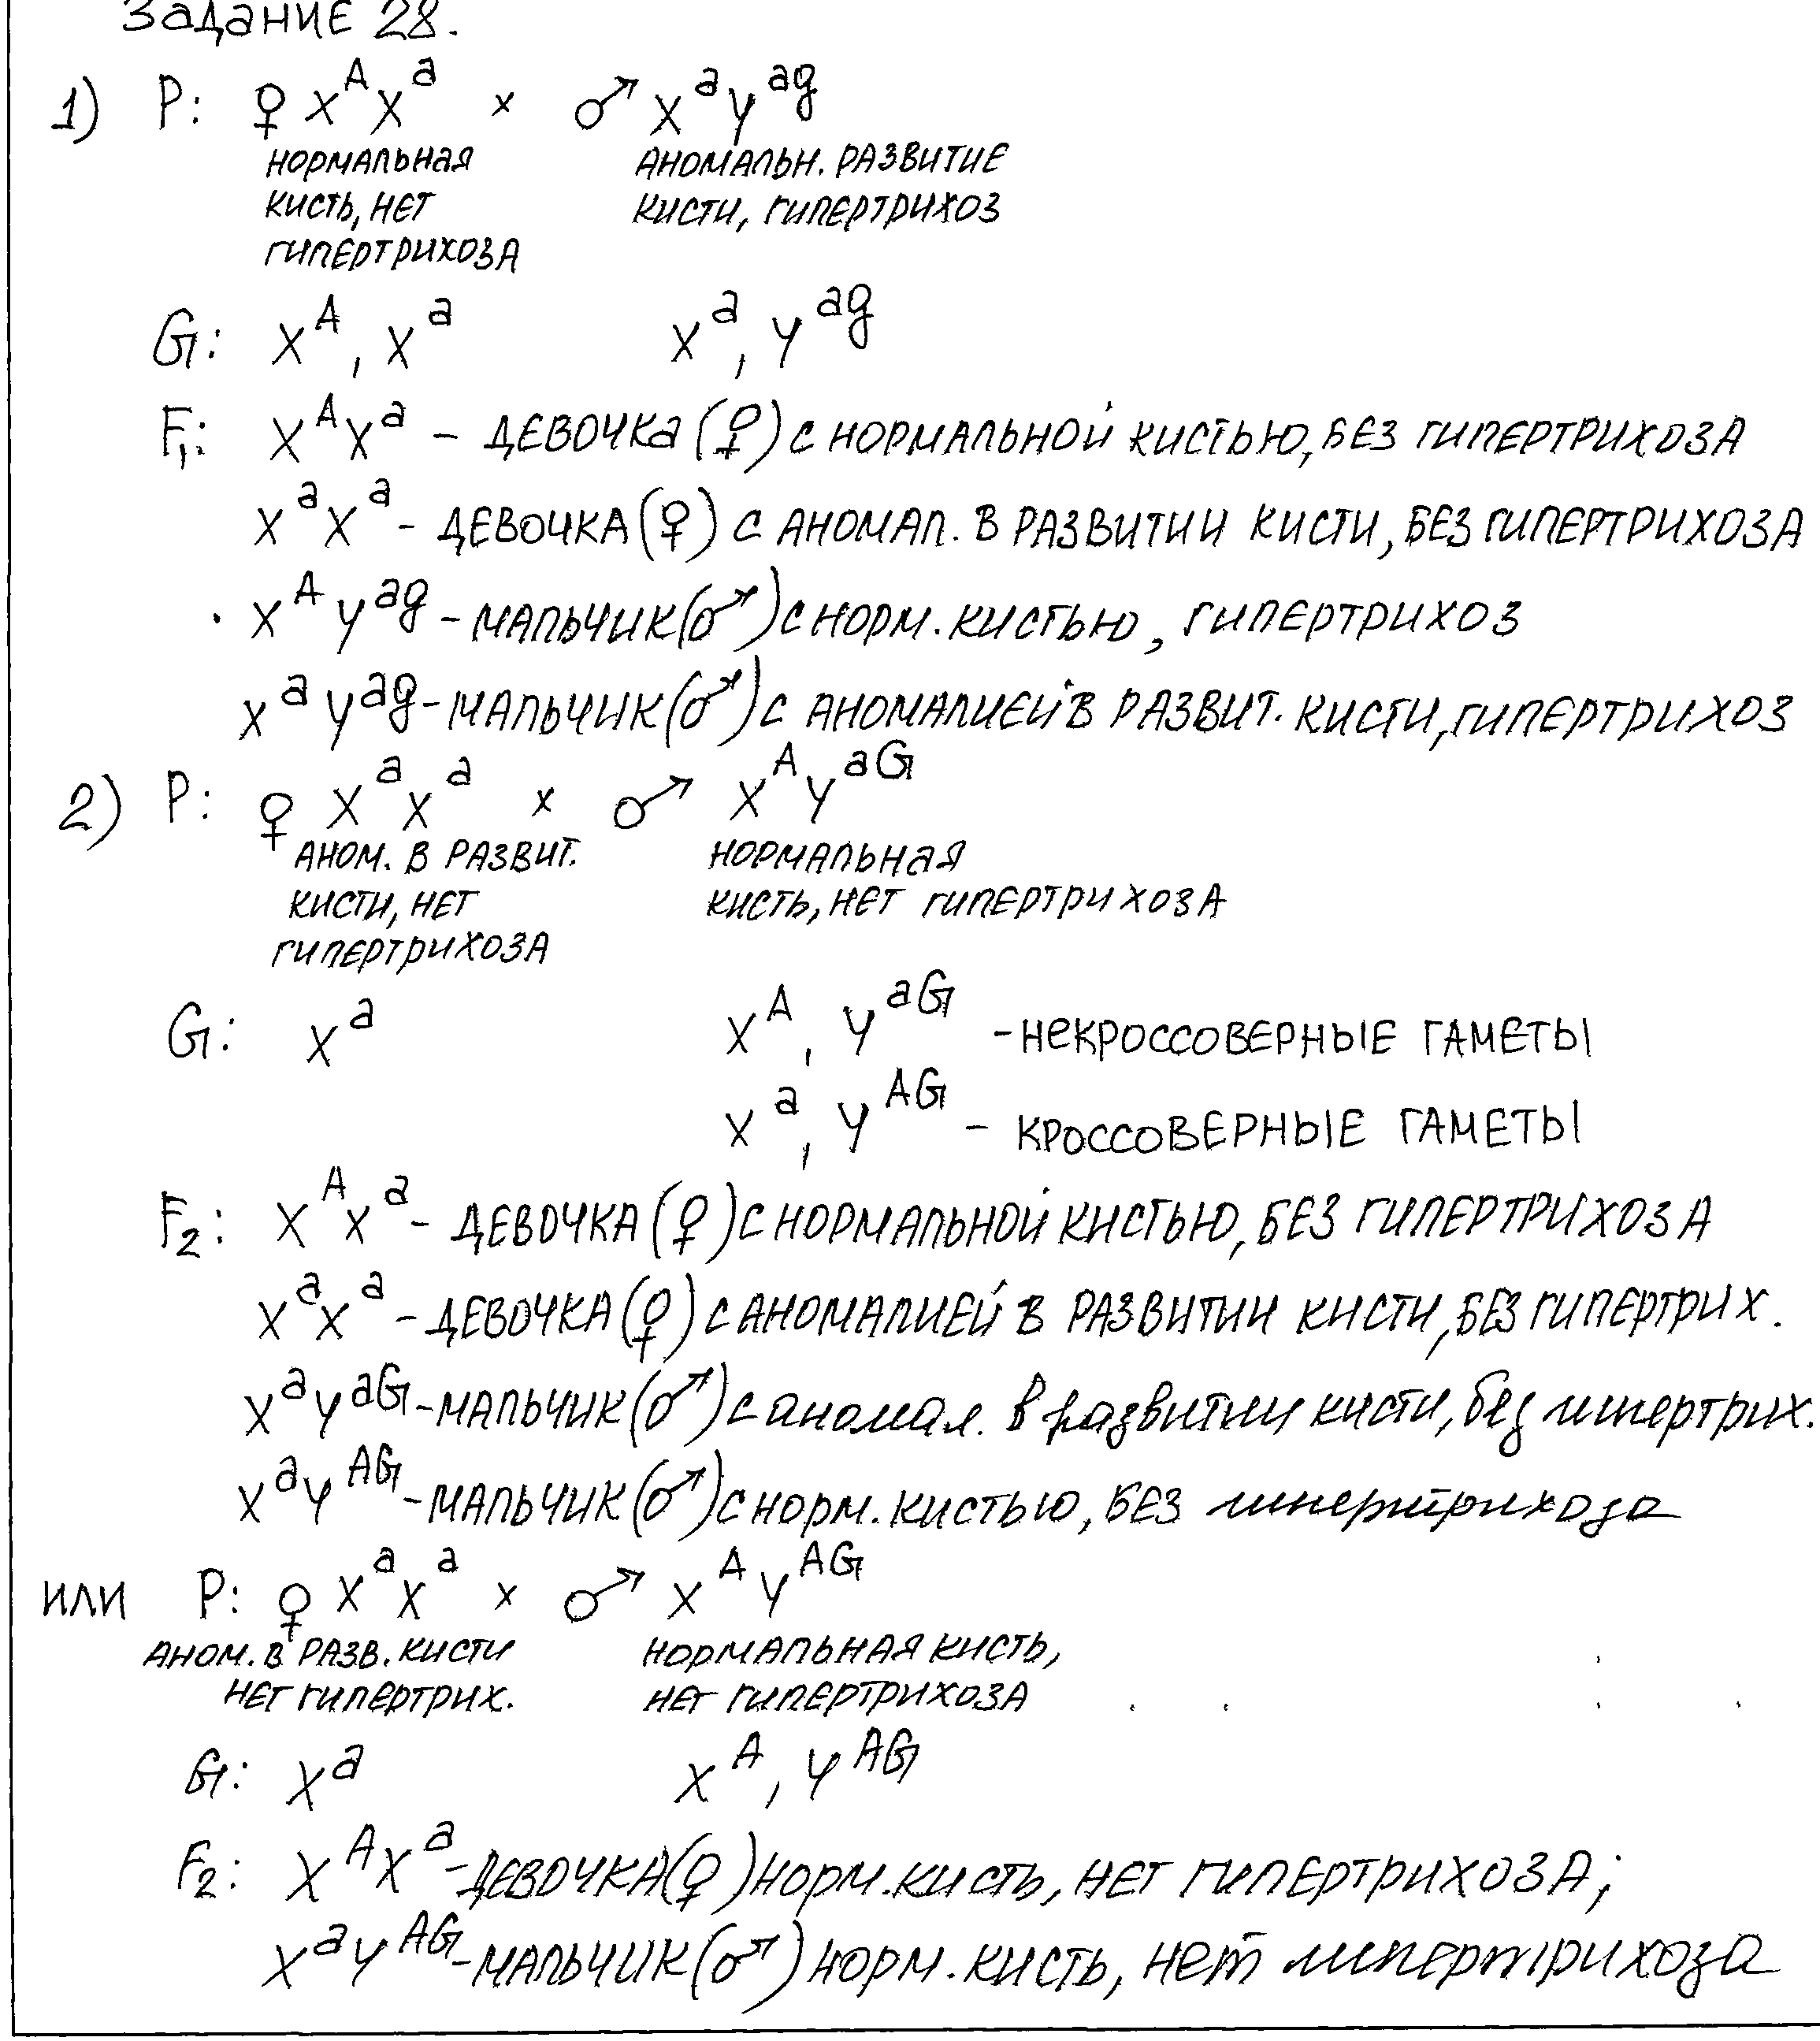 Задание 28.
1) P: ♀ X^A X^a × ♂ X^a Y^ag
нормальная аномальн. развитие
кисть, нет кисти, гипертрихоз
гипертрихоза
G: X^A, X^a X^a, Y^ag
F1: X^A X^a - девочка (♀) с нормальной кистью, без гипертрихоза
X^a X^a - девочка (♀) с аномал. в развитии кисти, без гипертрихоза
X^A Y^ag - мальчик (♂) с норм. кистью, гипертрихоз
X^a Y^ag - мальчик (♂) с аномалией в развит. кисти, гипертрихоз
2) P: ♀ X^a X^a × ♂ X^A Y^aG
аном. в развит. нормальная
кисти, нет кисть, нет гипертрихоза
гипертрихоза
G: X^a X^A, Y^aG - некроссоверные гаметы
X^a, Y^AG - кроссоверные гаметы
F2: X^A X^a - девочка (♀) с нормальной кистью, без гипертрихоза
X^a X^a - девочка (♀) с аномалией в развитии кисти, без гипертрих.
X^a Y^aG - мальчик (♂) с аномал. в развитии кисти, без гипертрих.
X^a Y^AG - мальчик (♂) с норм. кистью, без гипертрихоза
или P: ♀ X^a X^a × ♂ X^A Y^AG
аном. в разв. кисти нормальная кисть,
нет гипертрих. нет гипертрихоза
G: X^a X^A, Y^AG
F2: X^A X^a - девочка (♀) норм. кисть, нет гипертрихоза;
X^a Y^AG - мальчик (♂) норм. кисть, нет гипертрихоза